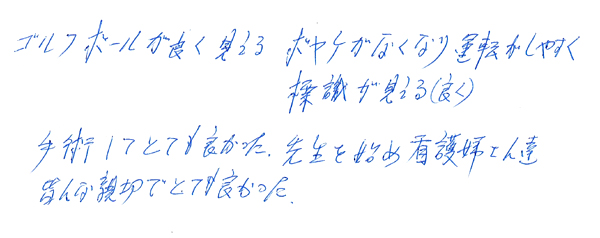 ゴルフボールが良く見える ボヤケがなくなり運転がしやすく
標識が見える(良く)
手術してとても良かった。先生を始め看護婦さん達
皆んな親切でとても良かった。